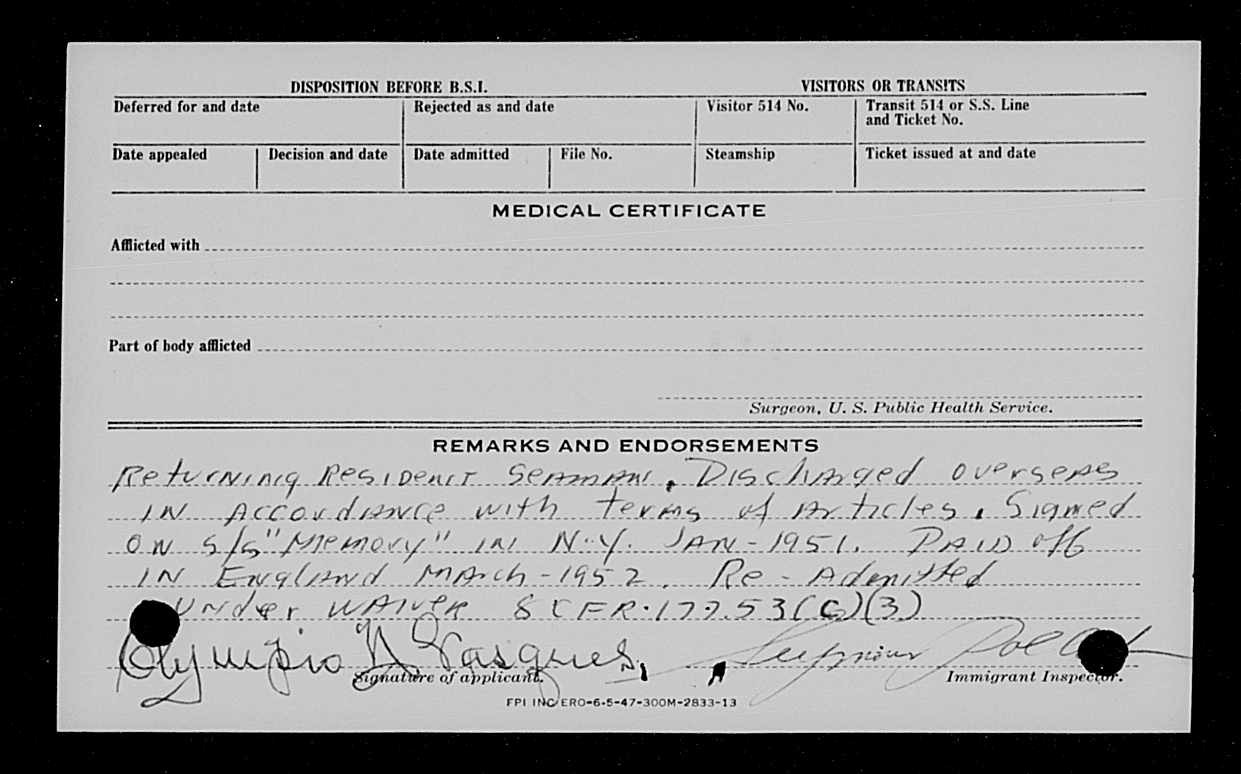 DISPOSITION BEFORE B.S.I. VISITORS OR TRANSITS
Deferred for and date Rejected as and date Visitor 514 No. Transit 514 or S.S. Line
and Ticket No.
Date appealed Decision and date Date admitted File No. Steamship Ticket issued at and date
MEDICAL CERTIFICATE
Afflicted with
Part of body afflicted
Surgeon, U. S. Public Health Service.
REMARKS AND ENDORSEMENTS
Returning Resident Seaman. Discharged overseas
in accordance with terms of Articles. Signed
on s/s "Memory" in N.Y. Jan-1951. Paid off
in England March-1952. Re-Admitted
Under Waiver 8 CFR.177.53(C)(3)
Olympio N. Vasques
Signature of applicant. Immigrant Inspector.
FPI INC ERO-6-5-47-300M-2833-13